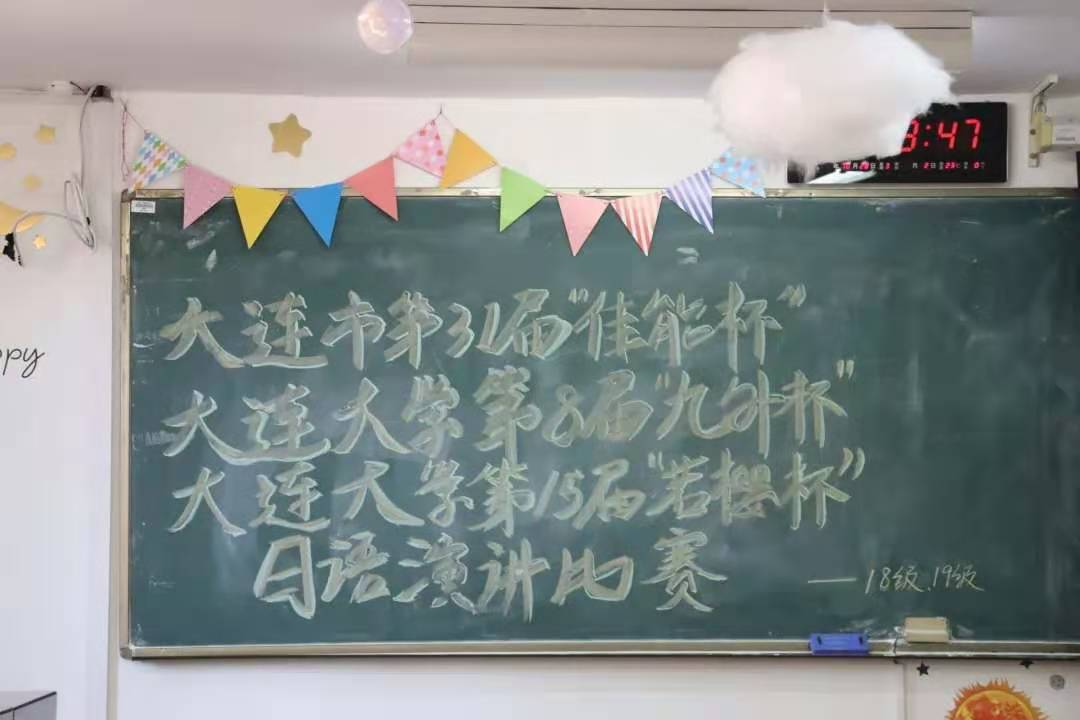 :47
ppy
大连市第31届"佳能杯"
大连大学第8届"九外杯"
大连大学第15届"若樱杯"
日语演讲比赛
——18级、19级